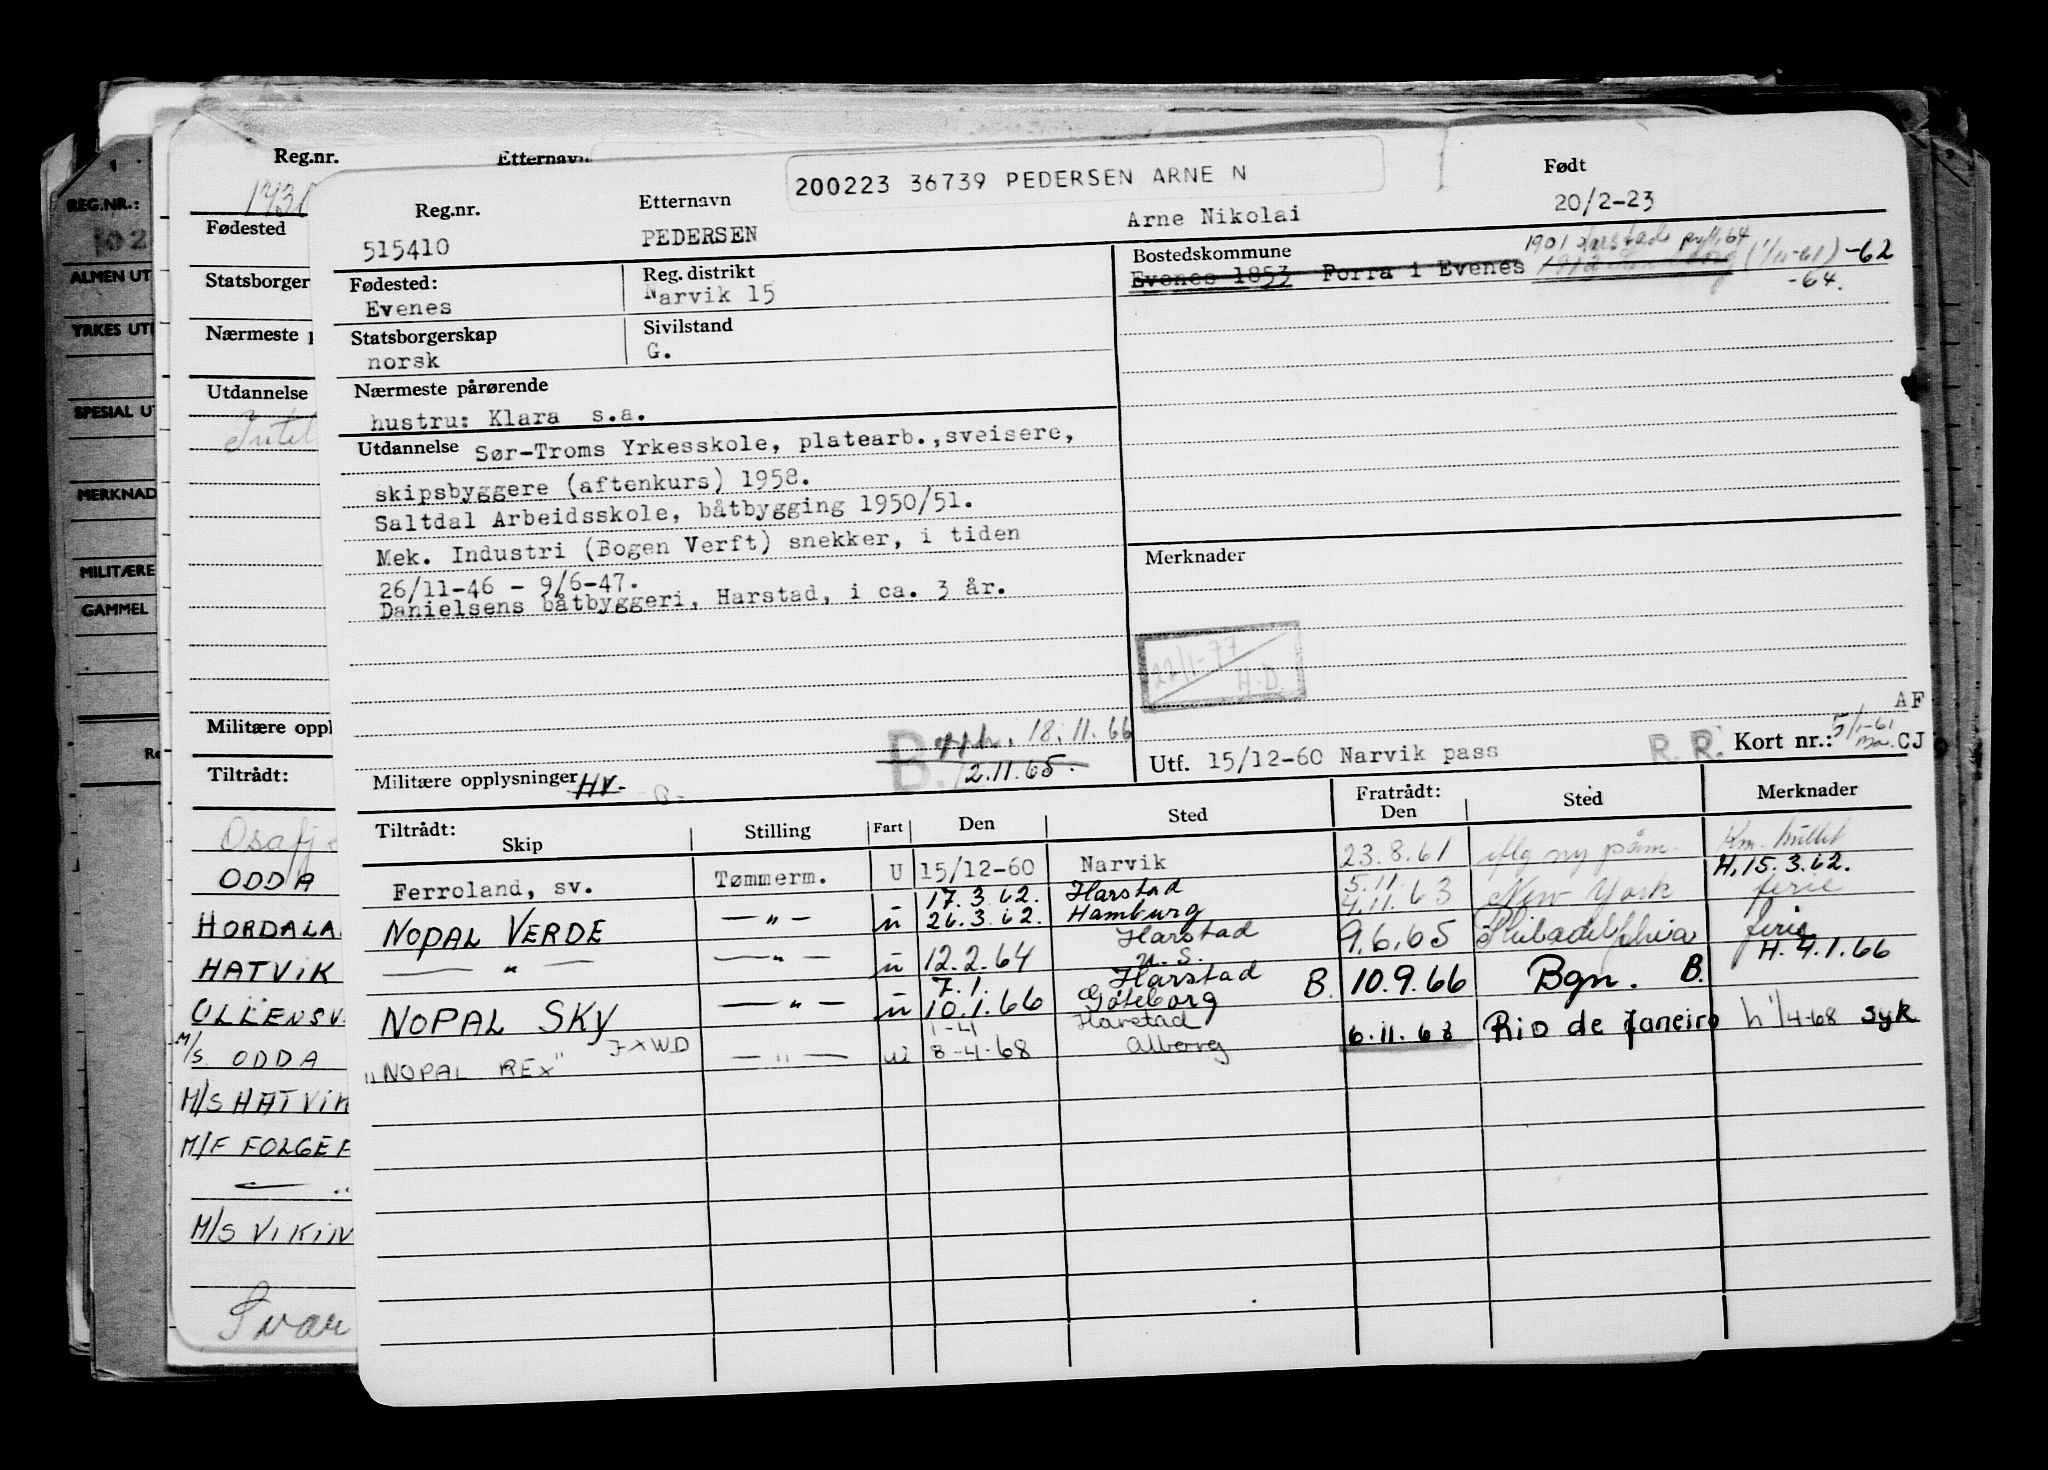 Reg.nr.
Etternavn
Fødested
Statsborger
Nærmeste p
Utdannelse
Militære oppl
Tiltrådt:
ODDA
HORDALA
HATVIK
ULLENSV
M/S ODDA
M/S HATVIK
M/F FOLGEF
M/S VIKIN
Svar
REG.NR.:
ALMEN UT
YRKES UT
SPESIAL U
MERKNAD
MILITÆRE
GAMMEL
200223 36739 PEDERSEN ARNE N
Reg.nr. Etternavn Født
515410 PEDERSEN Arne Nikolai 20/2-23
Fødested: Reg. distrikt Bostedskommune
Evenes Narvik 15 Evenes 1853 Forra i Evenes 1901 Harstad (1/11-61) -62
-64.
Statsborgerskap Sivilstand
norsk G.
Nærmeste pårørende
hustru: Klara s.a.
Utdannelse Sør-Troms Yrkesskole, platearb.,sveisere,
skipsbyggere (aftenkurs) 1958.
Saltdal Arbeidsskole, båtbygging 1950/51.
Mek. Industri (Bogen Verft) snekker, i tiden
26/11-46 - 9/6-47.
Danielsens båtbyggeri, Harstad, i ca. 3 år.
Merknader
22/1-77
H.D.
AF
Utf. 15/12-60 Narvik pass R. R. Kort nr.: 5/1-61 CJ
B. opph. 18.11.66
12.11.65.
Militære opplysninger HV-
Tiltrådt: Skip Stilling Fart Den Sted Fratrådt: Den Sted Merknader
Ferroland, sv. Tømmerm. U 15/12-60 Narvik 23.8.61 iflg ny påm.
H.15.3.62.
17.3.62. Harstad 5.11.
NOPAL VERDE — " — u 26.3.62. Hamburg 4.11.63 New York ferie
Harstad
— " — — " — u 12.2.64 N.S. 9.6.65 Philadelphia ferie
H. 4.1.66
7.1. Harstad
NOPAL SKY — " — u 10.1.66 Gøteborg B. 10.9.66 Bgn. B.
1-4 Harstad
"NOPAL REX" JXWD — " — u 8-4-68 Alborg 6.11.68 Rio de Janeiro h 1/4-68 syk